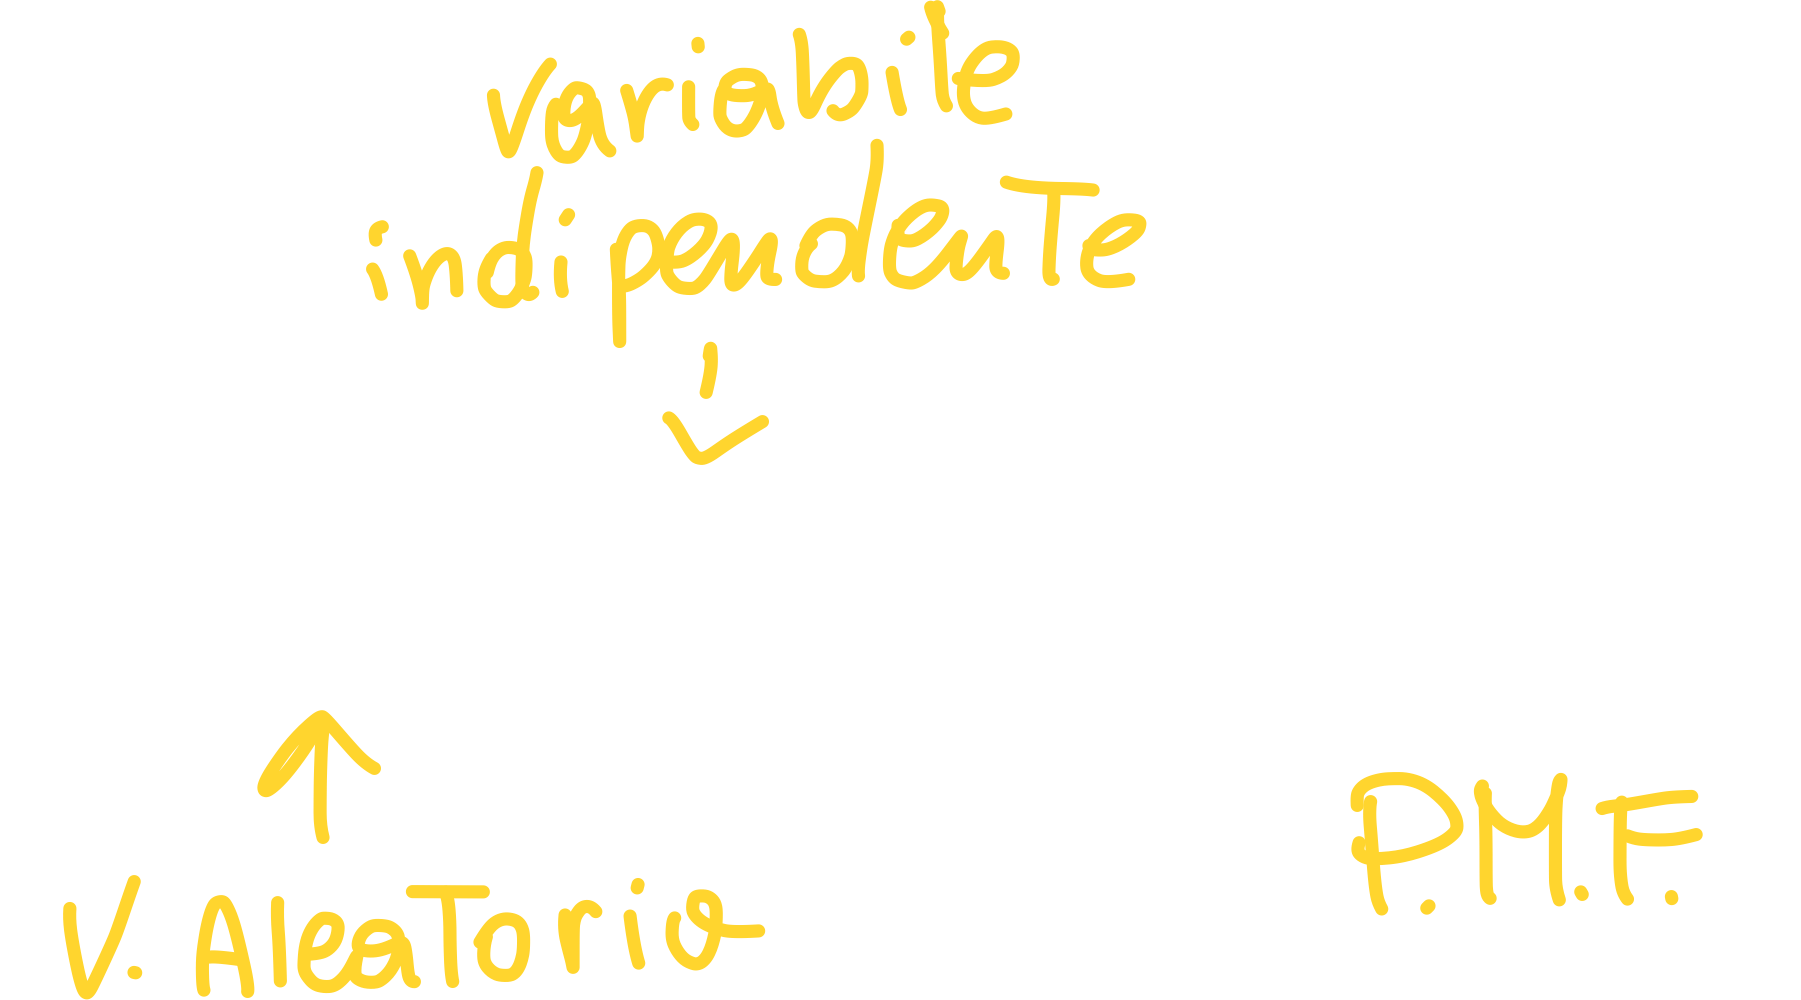 variabile
indipendente
V. Aleatorio
P.M.F.